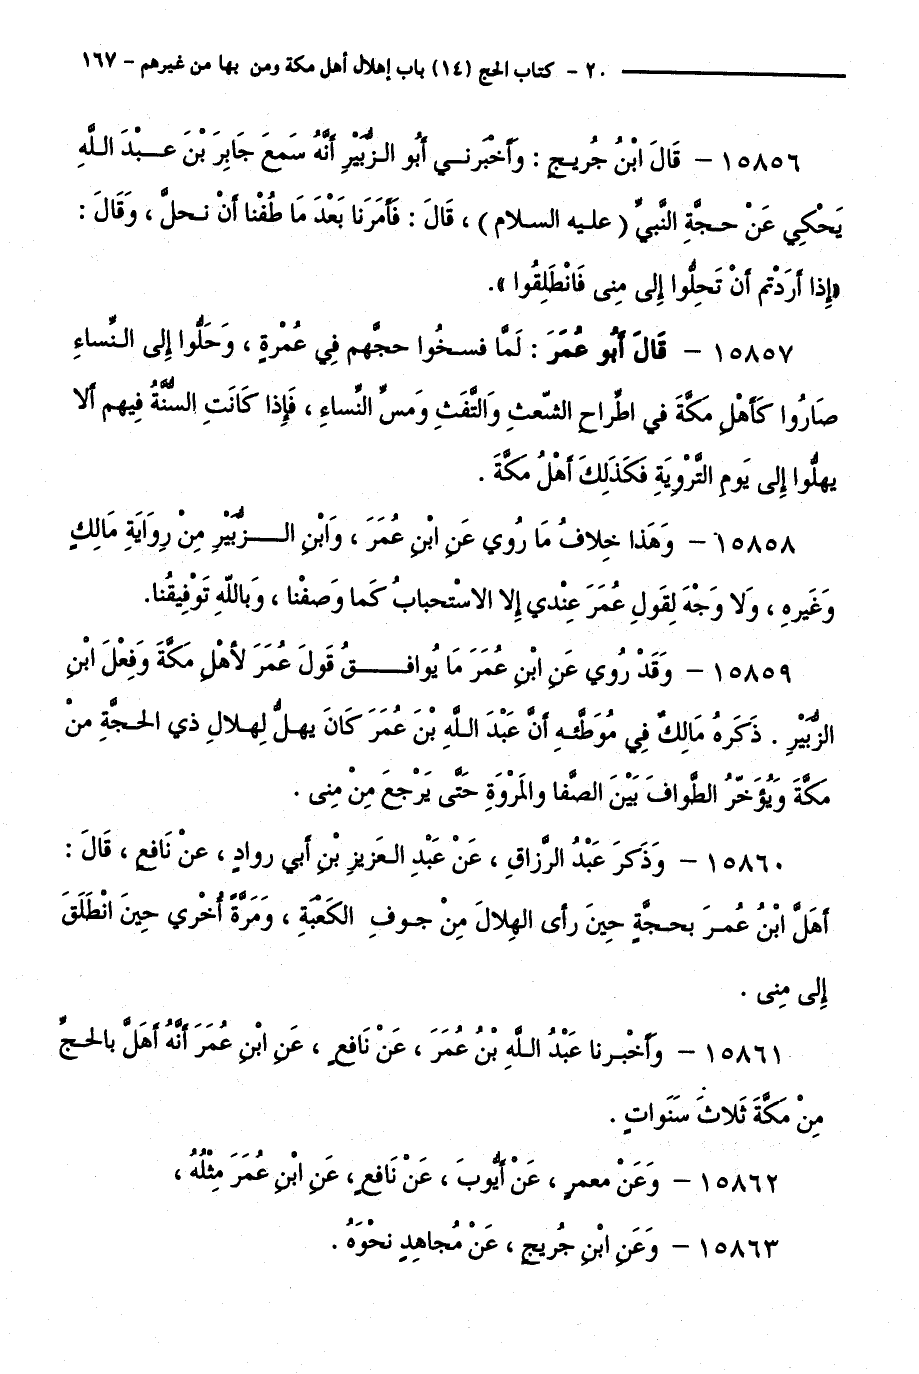 ٢٠ - كتاب الحج (١٤) باب إهلال أهل مكة ومن بها من غيرهم - ١٦٧
١٥٨٥٦ - قَالَ ابْنُ جُريجٍ : وَأَخْبَرنـي أَبُو الـزُّبَيْرِ أَنَّهُ سَمعَ جَابِرَ بْنَ عـبْدَ اللَّهِ
يَحْكِي عَنْ حـجَّةِ النَّبيِّ ( عليه السلام ) ، قَالَ : فَأَمَرَنا بَعْدَ مَا طُفْنا أَنْ نـحلَّ ، وَقَالَ :
«إِذا أَرَدْتم أَنْ تَحِلُّوا إِلى مِنى فَانْطَلِقُوا ».
١٥٨٥٧ - قَالَ أَبُو عُمَرَ : لَمَّا فسـخُوا حجَّهم فِي عُمْرةٍ ، وَحَلُّوا إِلى النِّساءِ
صَارُوا كَأَهْلِ مكَّةَ في اطِّراحِ الشّعثِ وَالتَّفَثِ وَمسِّ النِّساءِ ، فَإِذا كَانَتِ السنَّةُ فيهم أَلا
يهلُّوا إِلى يَومِ التَّرْوِيَةِ فكَذَلِكَ أَهْلُ مكَّةَ .
١٥٨٥٨ - وَهَذا خِلافُ مَا رُوي عَنِ ابْنِ عُمَرَ ، وَابْنِ الـزُّبَيْرِ مِنْ رِوَايَةِ مَالِكٍ
وَغَيرهِ ، وَلا وَجْهَ لِقولِ عُمَرَ عِنْدي إِلا الاسْتحبابُ كَما وَصفْنا ، وَبِاللَّهِ تَوْفِيقُنا.
١٥٨٥٩ - وَقَدْ رُوي عَنِ ابْنِ عُمَرَ مَا يُوافـقُ قَولَ عُمَرَ لأهْلِ مكَّةَ وَفِعْلَ ابْنِ
الزُّبَيْرِ . ذَكَرَهُ مَالِكٌ فِي مُوَطَّئهِ أَنَّ عَبْدَ اللَّهِ بْنَ عُمَرَ كَانَ يهلُّ لِهِلالِ ذي الحـجَّةِ مـنْ
مكَّةَ وَيُؤَخِّرُ الطَّوافَ بَيْنَ الصَّفا والمَرْوَةِ حَتَّى يَرْجعَ مِنْ مِنى .
١٥٨٦٠ - وَذَكرَ عَبْدُ الرَّزاقِ ، عَنْ عَبْدِ العَزيزِ بْنِ أَبي روادٍ ، عنْ نَافعٍ ، قَالَ :
أَهَلَّ ابْنُ عُمـرَ بحـجَّةٍ حِينَ رأَى الهِلالَ مِنْ جـوفِ الكَعْبَةِ ، وَمَرَّةً أُخْري حينَ انْطَلَقَ
إِلى مِنى .
١٥٨٦١ - وأَخْبـرنا عَبْدُ اللَّهِ بْنُ عُمَرَ ، عَنْ نَافعٍ ، عَنِ ابْنِ عُمَرَ أَنَّهُ أَهَلَّ بالحـجِّ
مِنْ مَكَّةَ ثَلاثَ سَنَواتٍ .
١٥٨٦٢ - وَعَنْ معمرٍ ، عَنْ أَيُّوبَ ، عَنْ نَافعٍ، عَنِ ابْنِ عُمَرَ مِثْلُهُ ،
١٥٨٦٣ - وَعَنِ ابْنِ جُريجٍ ، عَنْ مُجاهِدٍ نحْوَهُ .